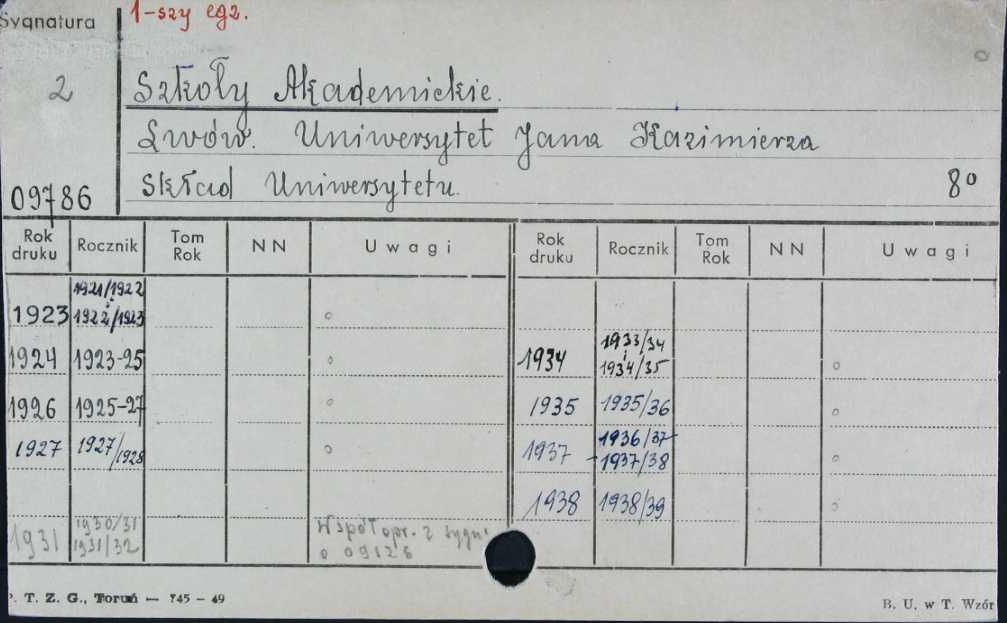 Sygnatura
1-szy egz.
2
Szkoły Akademickie.
Lwów. Uniwersytet Jana Kazimierza
Skład Uniwersytetu.
8°
09786
Rok druku Rocznik Tom Rok NN Uwagi Rok druku Rocznik Tom Rok NN Uwagi
1923 1921/1922 i 1922/1923
1924 1923-25 1934 1933/34 i 1934/35
1926 1925-27 1935 1935/36
1927 1927/1928 1937 1936/37 - 1937/38
1938 1938/39
1931 1930/31 1931/32 Współopr. z sygn.
09126
P. T. Z. G., Toruń — 745 – 49
B. U. w T. Wzór